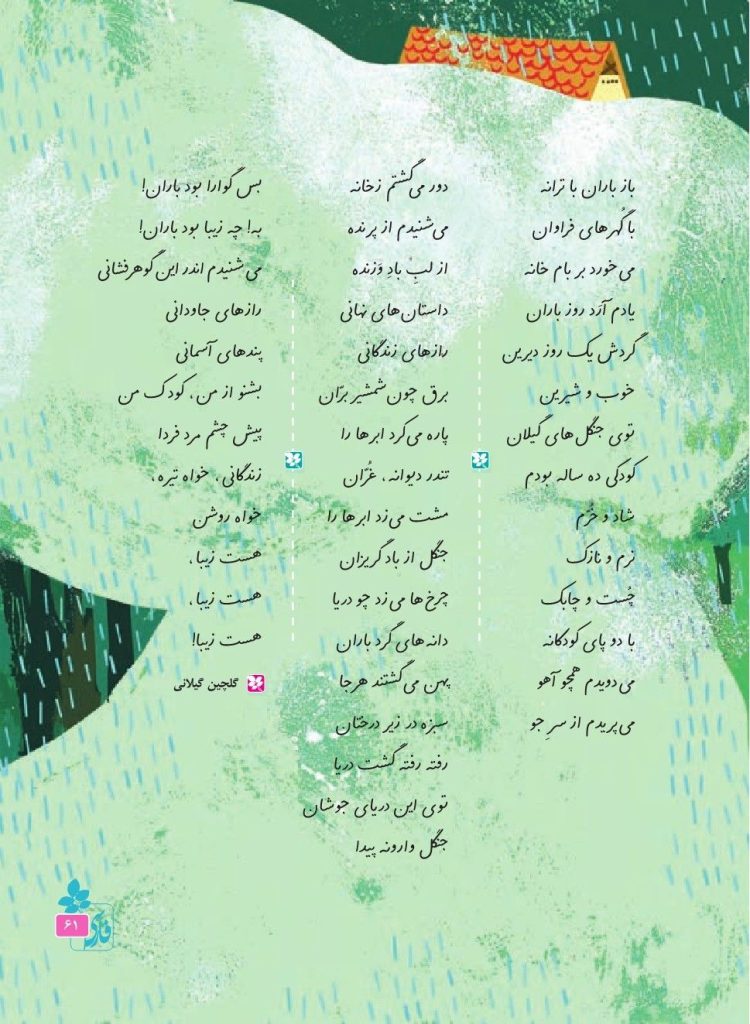 باز باران با ترانه
با گُهرهای فراوان
می‌خورد بر بام خانه
یادم آرَد روز باران
گردش یک روز دیرین
خوب و شیرین
توی جنگل‌های گیلان
کودکی ده ساله بودم
شاد و خرّم
نرم و نازک
چُست و چابک
با دو پای کودکانه
می‌دویدم همچو آهو
می‌پریدم از سرِ جو
دور می‌گشتم زخانه
می‌شنیدم از پرنده
از لبِ بادِ وَزنده
داستان‌های نهانی
رازهای زندگانی
برق چون شمشیر برّان
پاره می‌کرد ابرها را
تندر دیوانه، غرّان
مشت می‌زد ابرها را
جنگل از باد گریزان
چرخ‌ها می‌زد چو دریا
دانه‌های گرد باران
پهن می‌گشتند هرجا
سبزه در زیر درختان
رفته رفته گشت دریا
توی این دریای جوشان
جنگل وارونه پیدا
بس گوارا بود باران!
به! چه زیبا بود باران!
می‌شنیدم اندر این گوهرفشانی
رازهای جاودانی
پندهای آسمانی
بشنو از من، کودک من
پیش چشم مرد فردا
زندگانی، خواه تیره،
خواه روشن
هست زیبا،
هست زیبا،
هست زیبا!
گلچین گیلانی
فارسی
۶۱